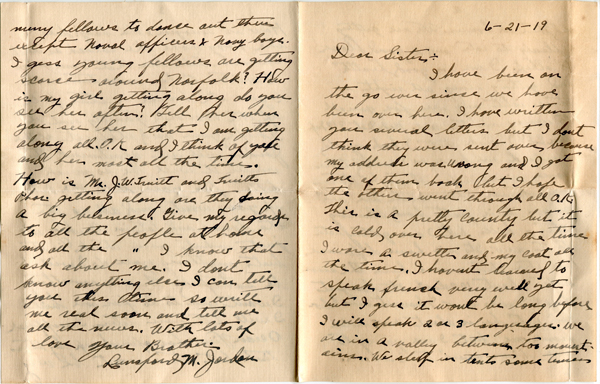 6-21-19
Dear Sister:
I have been on
the go ever since we have
been over here. I have written
you several letters but I dont
think they were sent over because
my address was wrong and I got
one of them back but I hope
the others went through all O.K.
This is a pretty country but it
is cold over here all the time
I wore a swetter and my coat all
the time. I havent learned to
speak french very well yet
but I guess it wont be long before
I will speak 2 or 3 languages. we
are in a valley between too mount-
ains. We sleep in tents some times
many fellows to dance out there
except Naval officers & Navy boys.
I gess young fellows are getting
scarce around Norfolk? How
is my girl getting along do you
see her often? Tell her when
you see her that I am getting
along all O.K and I think of you
and her most all the time.
How is Mr. J.W. Truitt and Truitts
Phar getting along are they doing
a big business. Give my regards
to all the people at home
and all the " I know that
ask about me. I dont
know anything else I can tell
you this time so write
me real soon and tell me
all the news. With lots of
love your Brother.
Lunsford M. Jordan